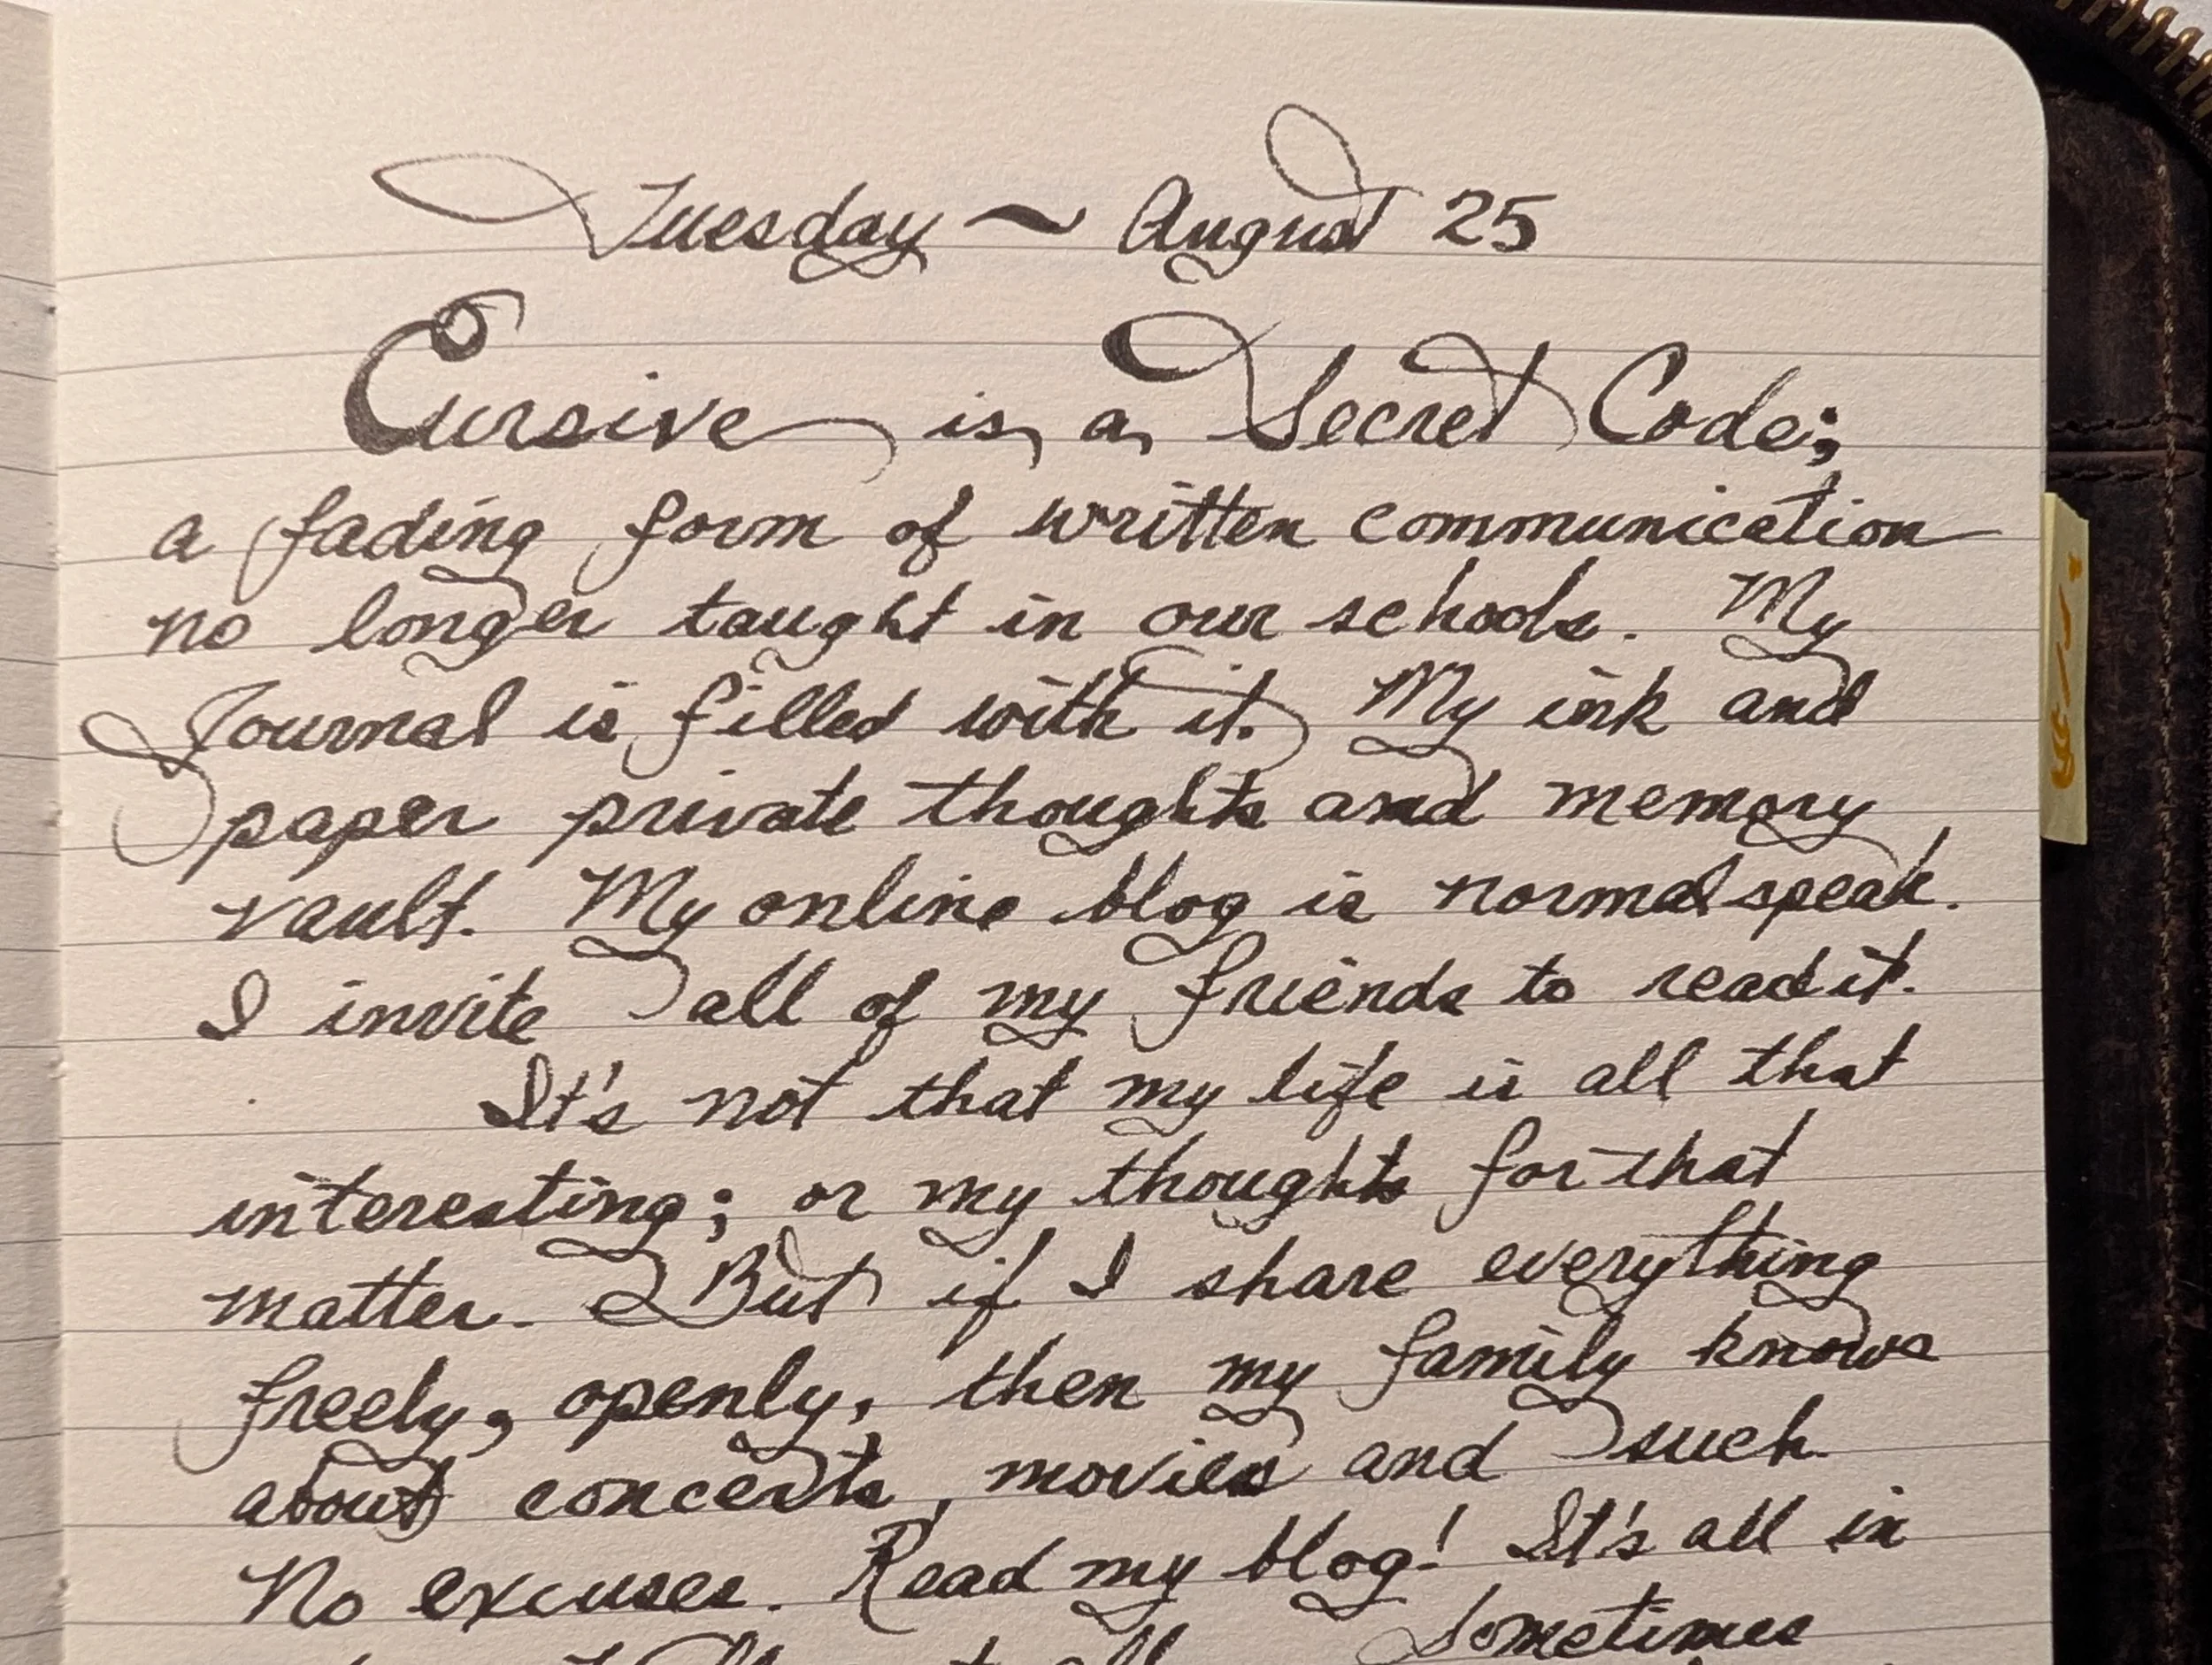 Tuesday ~ August 25
Cursive is a Secret Code;
a fading form of written communication
no longer taught in our schools. My
Journal is filled with it. My ink and
paper private thoughts and memory
vault. My online blog is normal speak.
I invite all of my friends to read it.
It's not that my life is all that
interesting; or my thoughts for that
matter. But if I share everything
freely, openly, then my family knows
about concerts, movies and such.
No excuses. Read my blog! It's all in
Sometimes